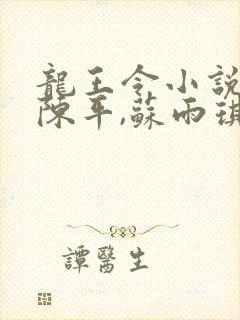 龍王令小說
陳平,蘇雨琪
譚醫生